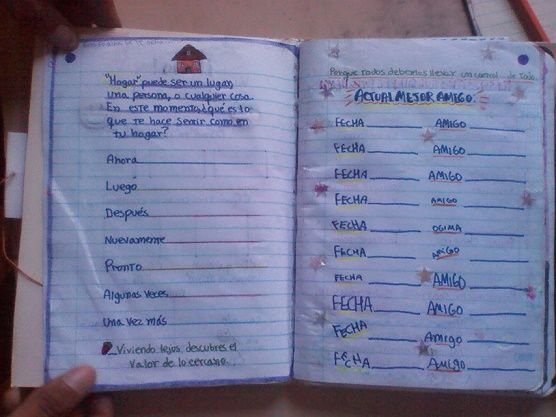 "Hogar" puede ser un lugar,
una persona, o cualquier cosa.
En este momento, ¿qué es lo
que te hace sentir como en
tu hogar?
Ahora
Luego
Después
Nuevamente
Pronto
Algunas veces
Una vez más
Viviendo lejos, descubres el
valor de lo cercano.
Porque todos deberíamos llevar un control de todo.
ACTUAL MEJOR AMIGO:
FECHA AMIGO
FECHA AMIGO
FECHA AMIGO
FECHA AMIGO
FECHA OGIMA
FECHA AMIGO
FECHA AMIGO
FECHA AMIGO
FECHA Amigo
FECHA Amigo